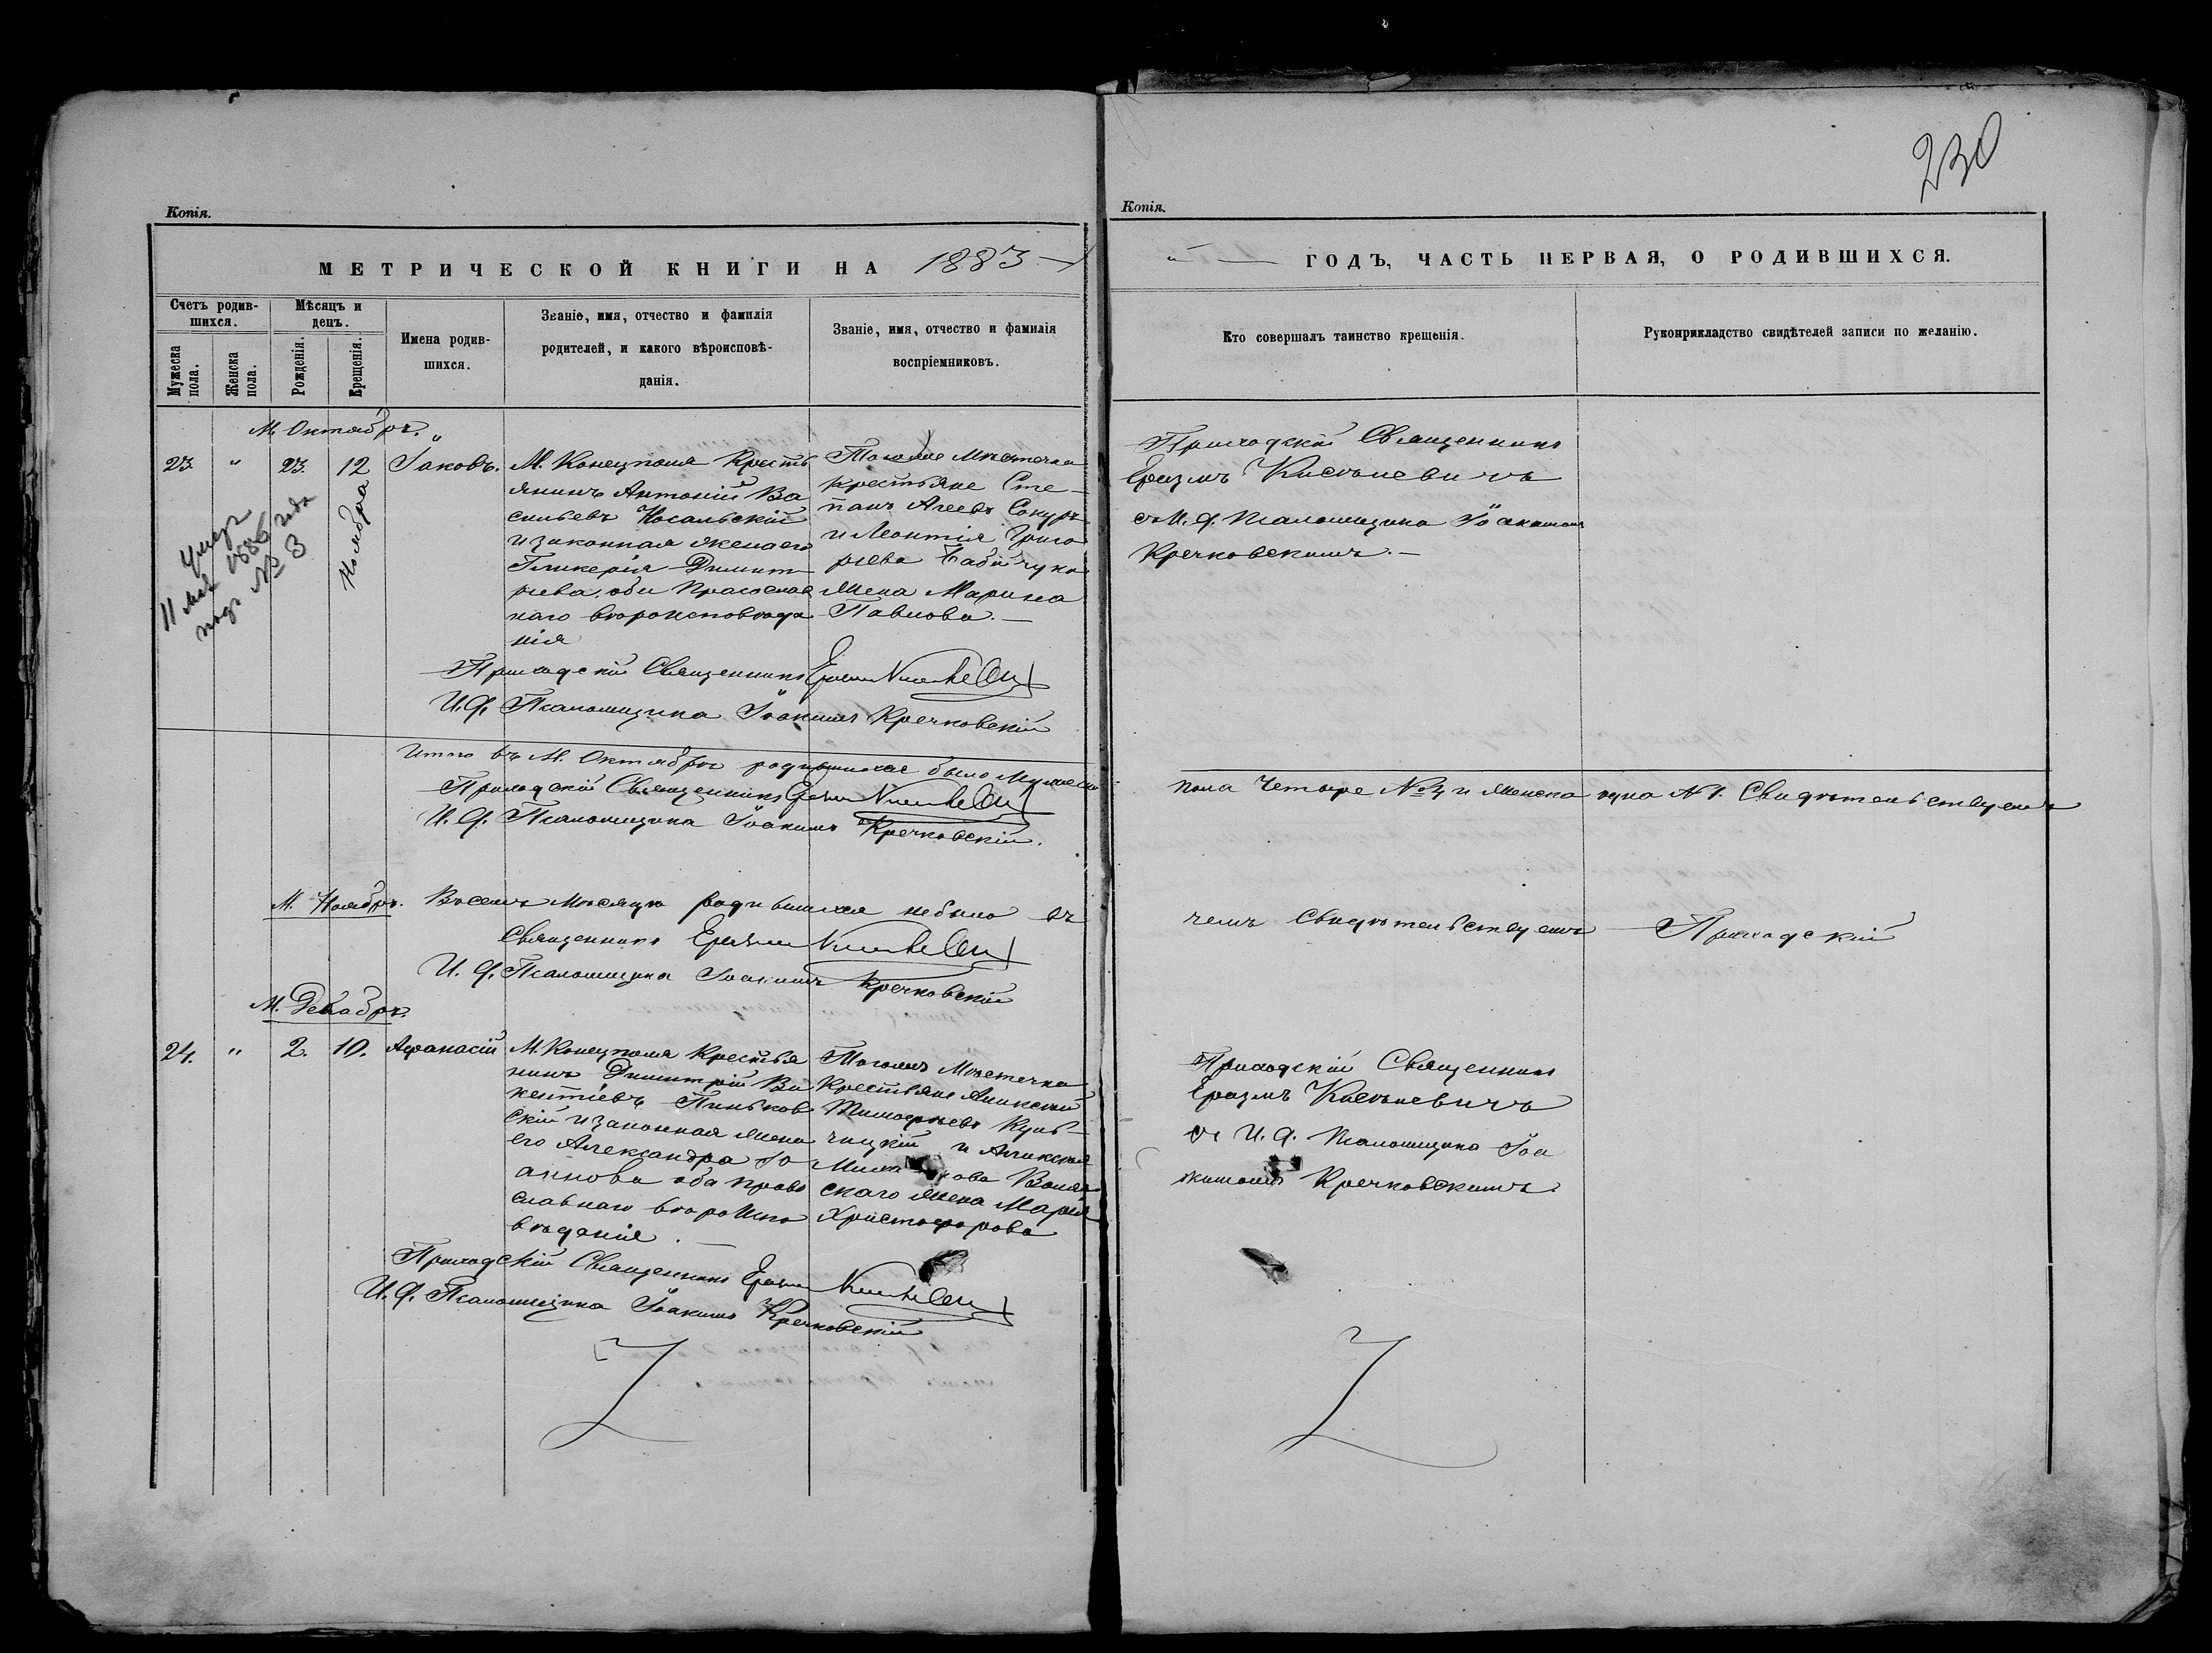 230
Копія.
Копія.
МЕТРИЧЕСКОЙ КНИГИ НА 1883
ГОДЪ, ЧАСТЬ ПЕРВАЯ, О РОДИВШИХСЯ.
Счетъ родив-
шихся.
Мужеска
пола.
Женска
пола.
Мѣсяцъ и
день.
Рожденія.
Крещенія.
Имена родив-
шихся.
Званіе, имя, отчество и фамилія
родителей, и какого вѣроисповѣ-
данія.
Званіе, имя, отчество и фамилія
воспріемниковъ.
Кто совершалъ таинство крещенія.
Рукоприкладство свидѣтелей записи по желанію.
М. Октябрь.
23. " 23. 12 Іаковъ.
Ноября
11 мая 1886 года
подъ № 3
М. Конецполя Кресть
янинъ Антоній Ва
сильевъ Носальскій
и законная жена его
Гликерія Димит
ріева, оба Православ
наго вѣроисповѣда
нія
Тогоже Мѣстечка
крестьяне Сте-
панъ Агеевъ
и Леонтія Григо
рьева
жена Марина
Павлова.—
Приходскій Священникъ
И. Ф. Псаломщика Іоакимъ Кречковскій
Приходскій Священникъ
Еразмъ
съ И. ф. Псаломщика Іоакимомъ
Кречковскимъ.—
Итого въ М. Октябрѣ родившихся было Мужеска
пола Четыре №4 и Женска одна №1. Свидѣтельствуемъ
Приходскій Священникъ
И. Ф. Псаломщика Іоакимъ Кречковскій.
М. Ноябрь. Въ семъ Мѣсяцѣ родившихся не было въ
чемъ Свидѣтельствуемъ Приходскій
Священникъ
И. Ф. Псаломщика Іоакимъ Кречковскій
М. Декабрь.
24. " 2. 10. Афанасій
М. Конецполя Крестья
нинъ Димитрій Ви
кентіевъ Пиньков
скій и законная жена
его Александра Іо
аннова оба право
славнаго вѣроиспо
вѣданія.—
Тогожъ Мѣстечка
Крестьяне Алексѣй
Тимофѣевъ Куль-
чицкій и Алексѣя
скаго жена Марія
Христофорова
Приходскій Священникъ
И. Ф. Псаломщика Іоакимъ Кречковскій
Приходскій Священникъ
Еразмъ
съ И. ф. Псаломщика Іоа
кимомъ Кречковскимъ.